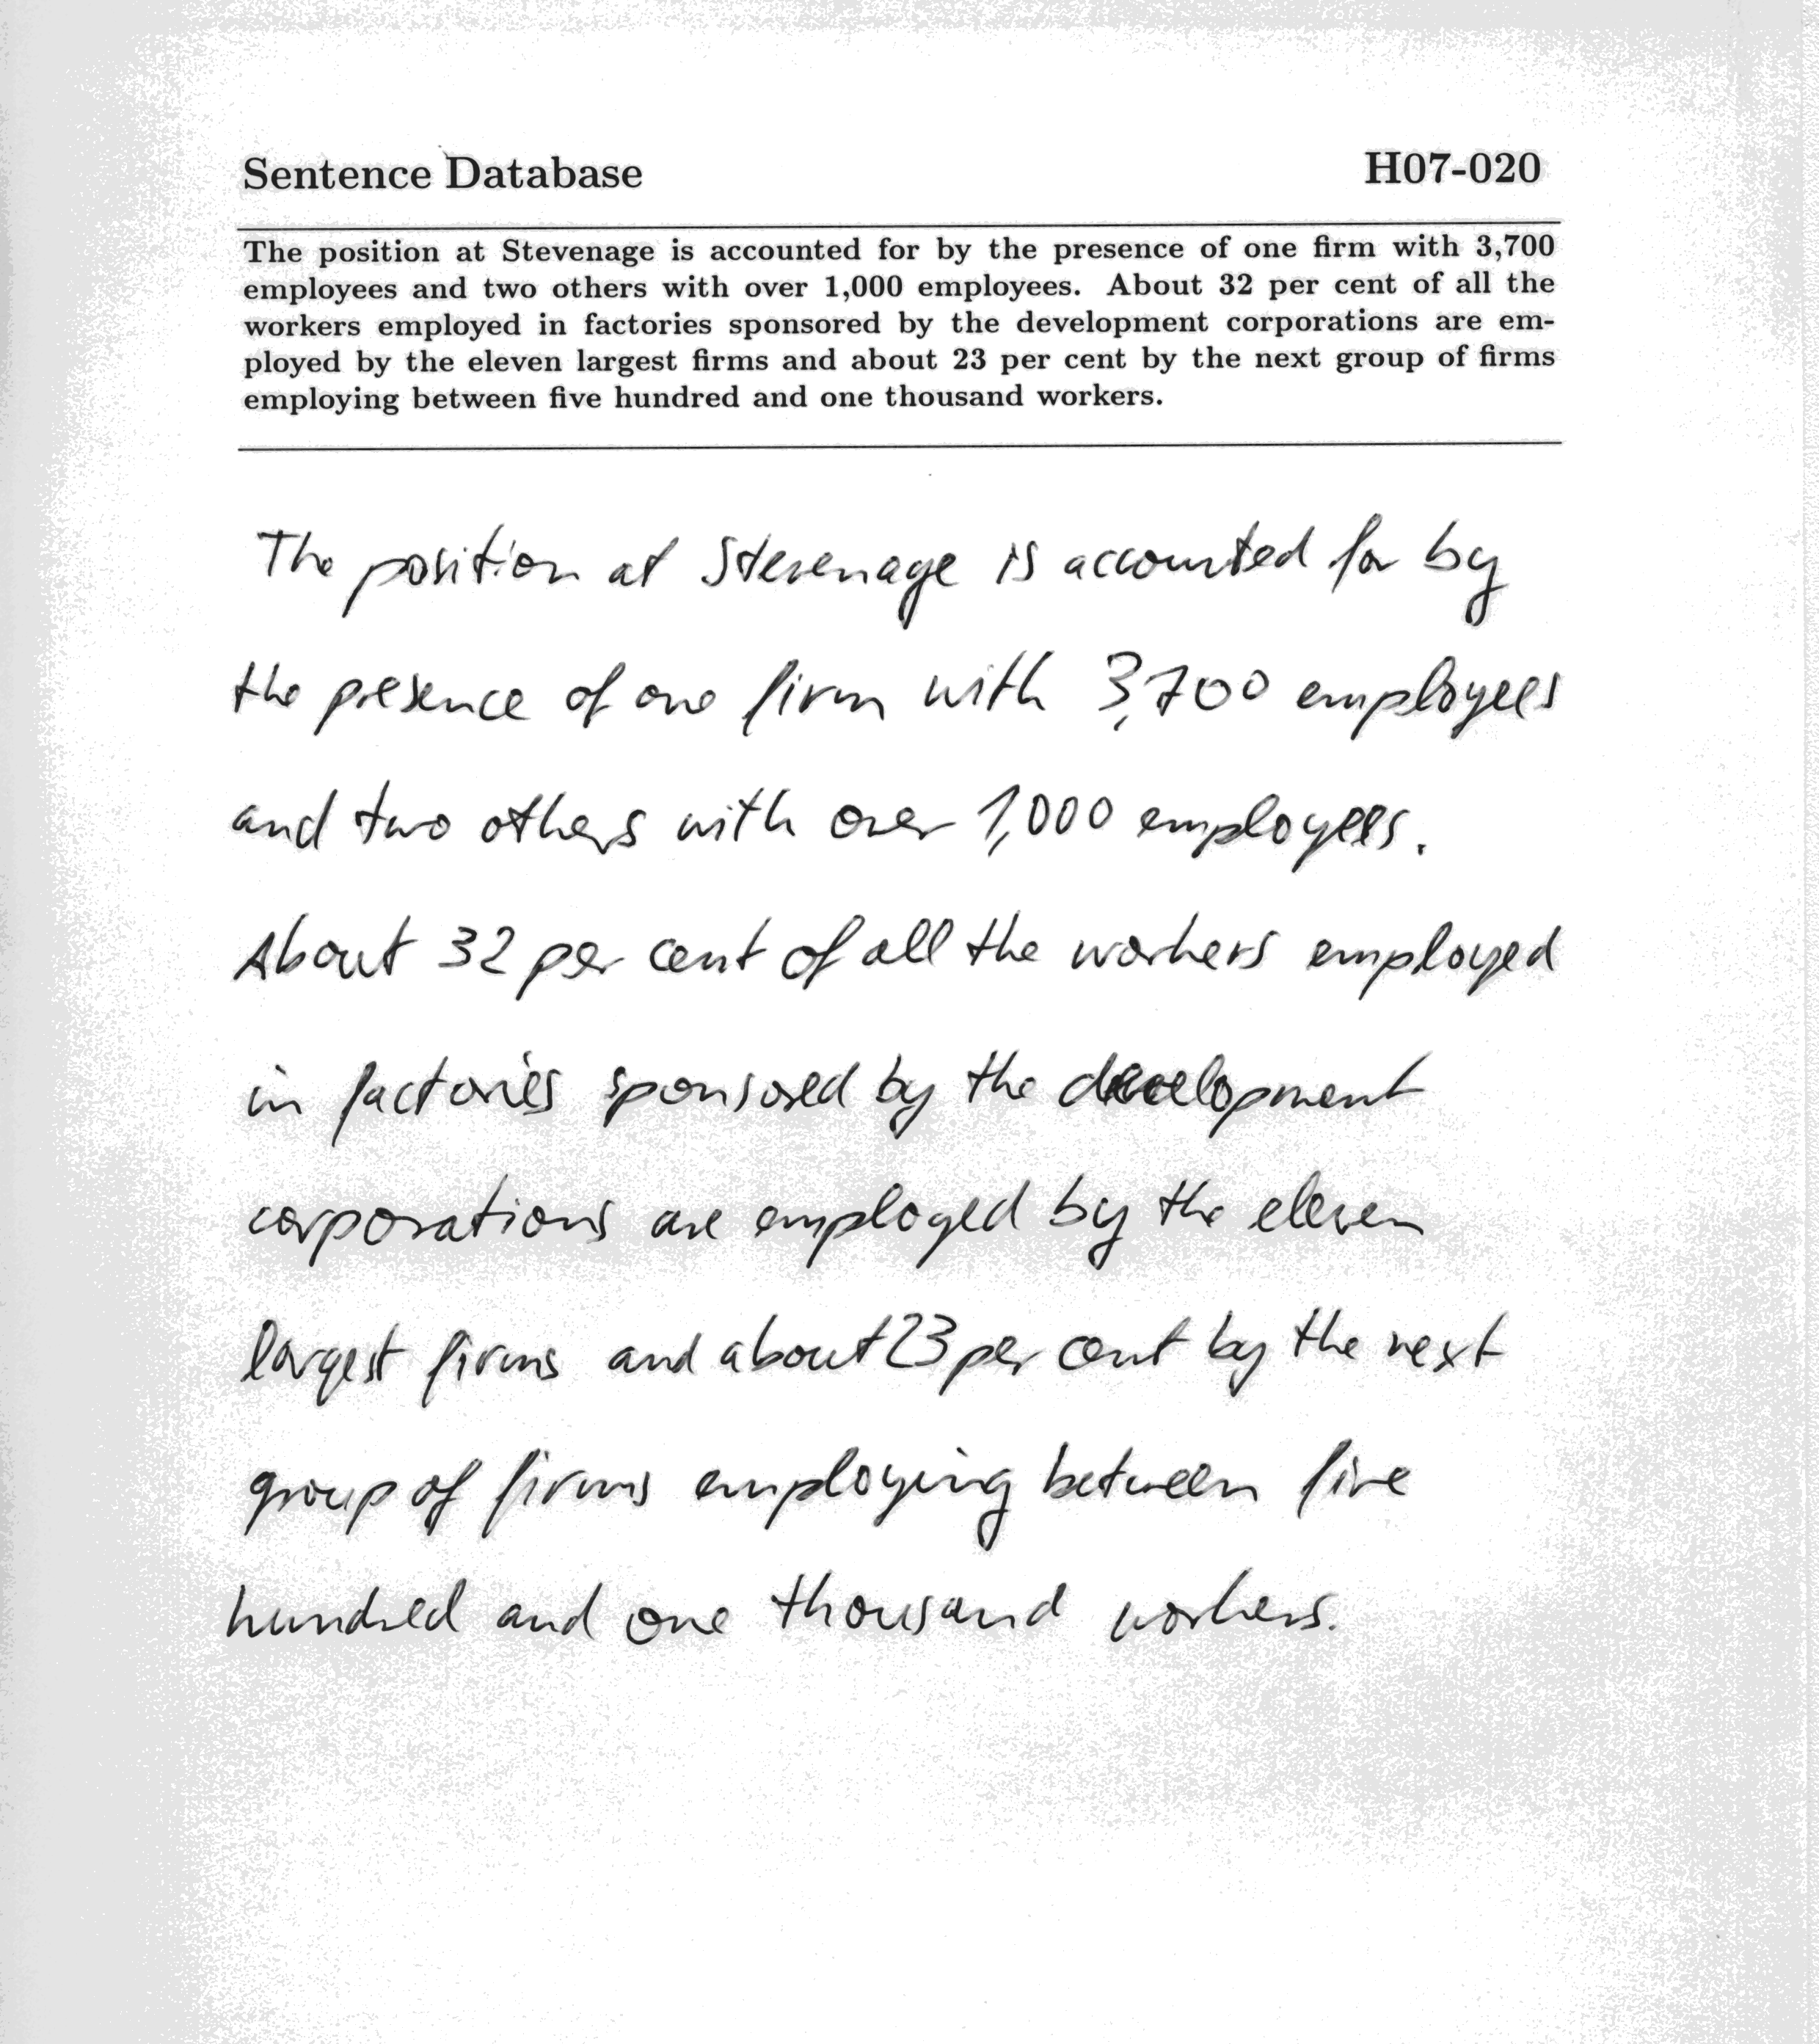 Sentence Database H07-020
The position at Stevenage is accounted for by the presence of one firm with 3,700
employees and two others with over 1,000 employees. About 32 per cent of all the
workers employed in factories sponsored by the development corporations are em-
ployed by the eleven largest firms and about 23 per cent by the next group of firms
employing between five hundred and one thousand workers.
The position at Stevenage is accounted for by
the presence of one firm with 3,700 employees
and two others with over 1,000 employees.
About 32 per cent of all the workers employed
in factories sponsored by the development
corporations are employed by the eleven
largest firms and about 23 per cent by the next
group of firms employing between five
hundred and one thousand workers.